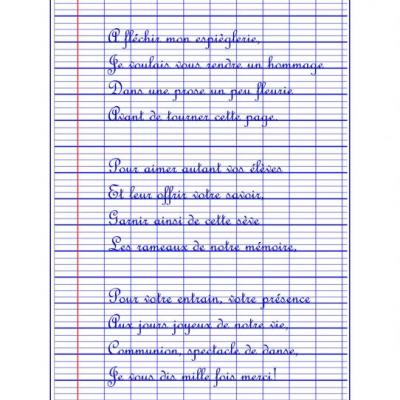 A fléchir mon espièglerie,
Je voulais vous rendre un hommage
Dans une prose un peu fleurie
Avant de tourner cette page.
Pour aimer autant vos élèves
Et leur offrir votre savoir,
Garnir ainsi de cette sève
Les rameaux de notre mémoire,
Pour votre entrain, votre présence
Aux jours joyeux de notre vie,
Communion, spectacle de danse,
Je vous dis mille fois merci!